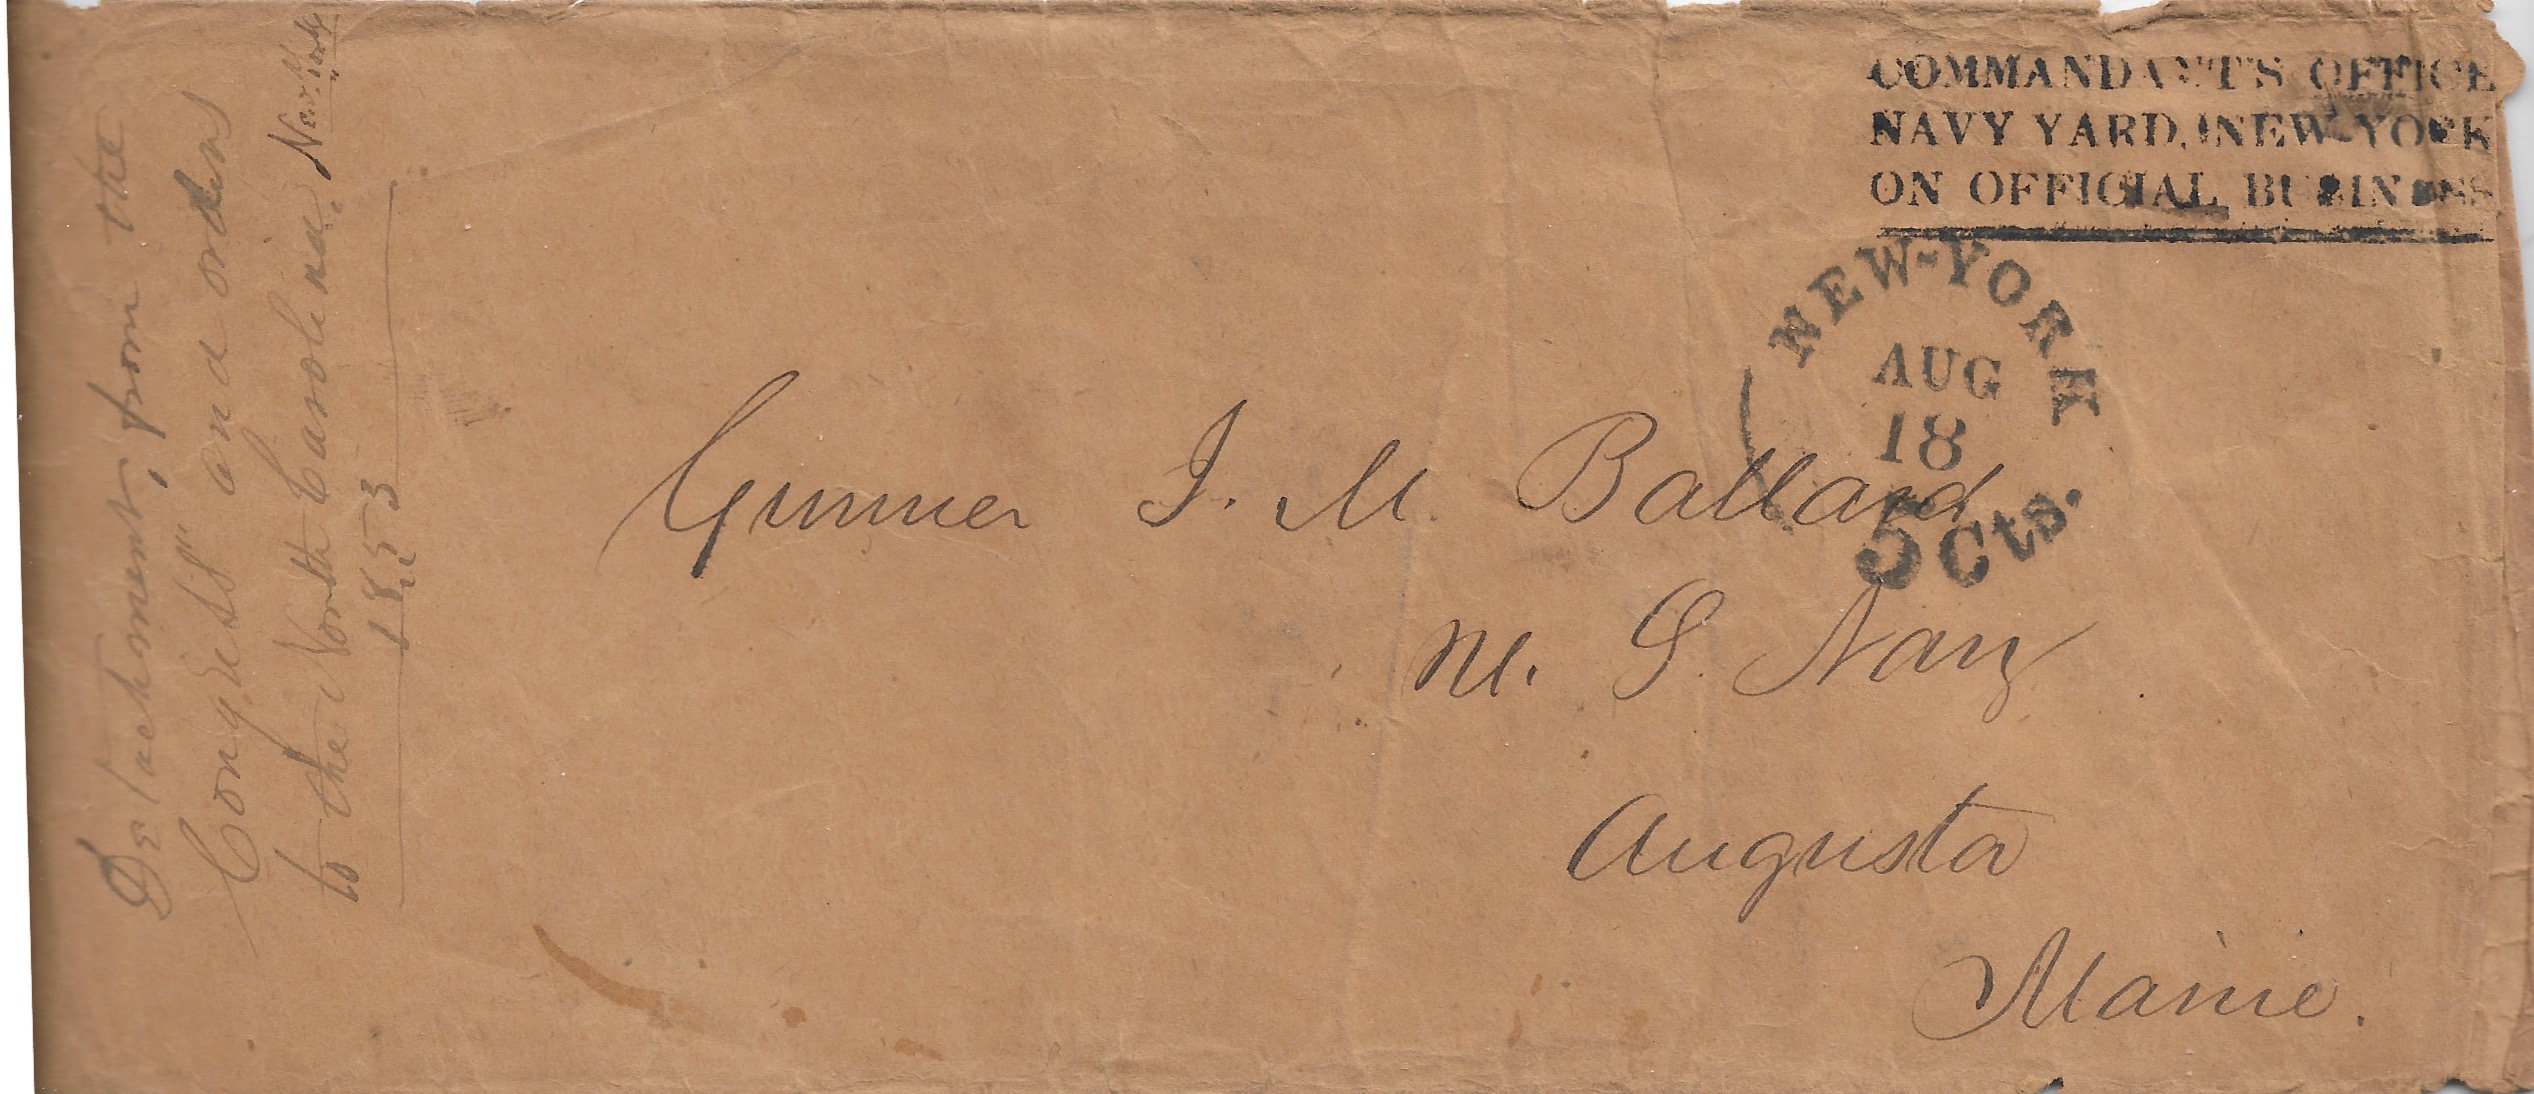 COMMANDANT'S OFFICE
NAVY YARD, NEW-YORK
ON OFFICIAL BUSINESS
NEW-YORK
AUG
18
5 Cts.
Gunner J. M. Ballard
U. S. Navy
Augusta
Maine.
Detachment, from the
Congress" and orders
to the North Carolina. New. York
1853